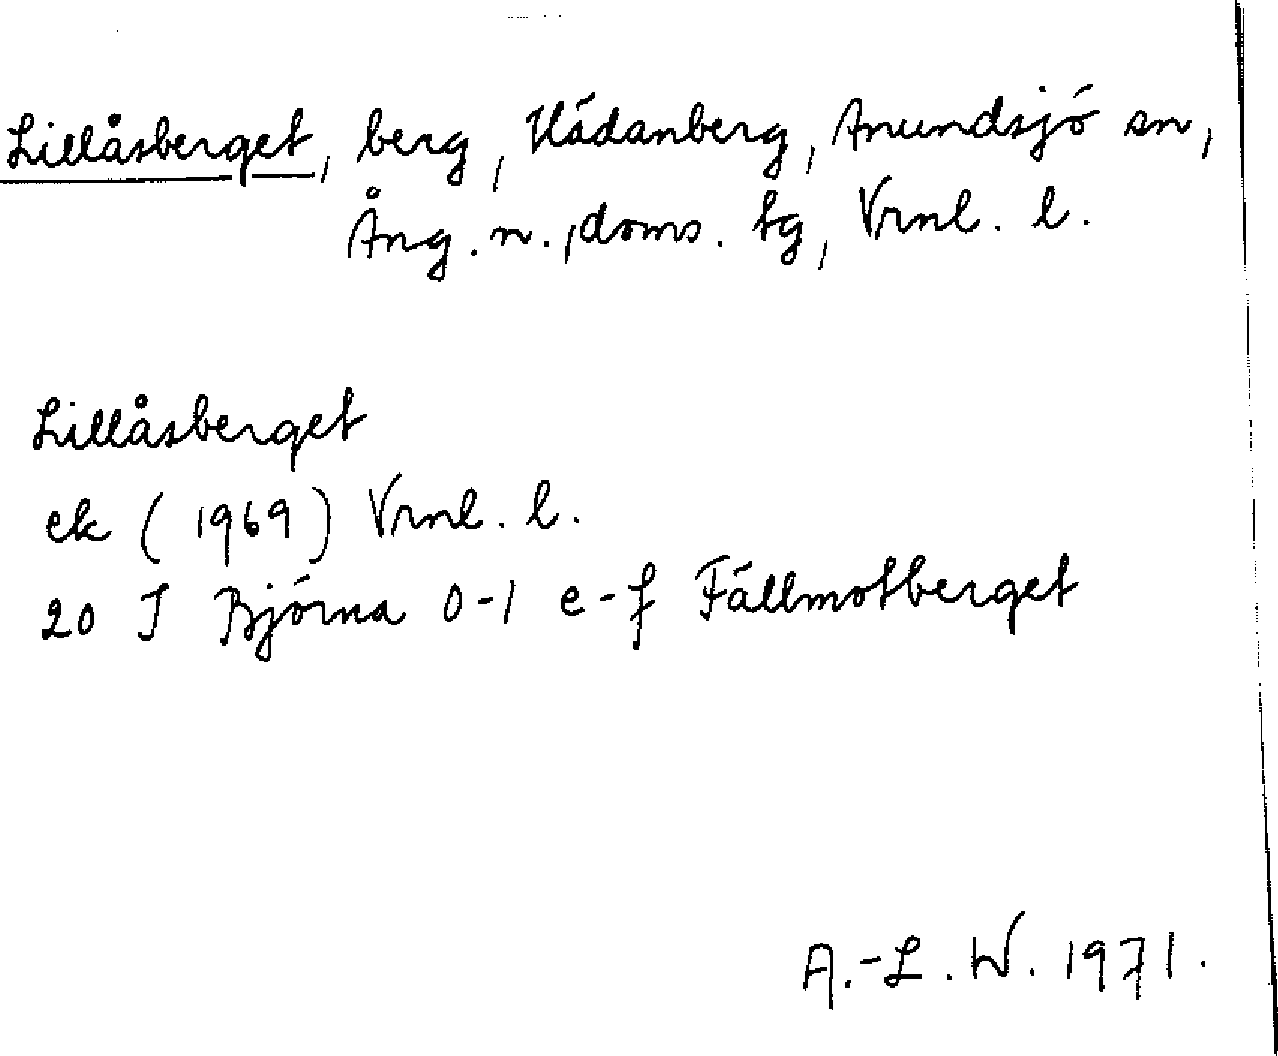 Lillåsberget, berg, Hädanberg, Anundsjö sn,
Ång. n., doms. tg, Vrnl. l.
Lillåsberget
ek (1969) Vrnl. l.
20 J Björna 0-1 e-f Fällmotberget
A.-L. W. 1971.